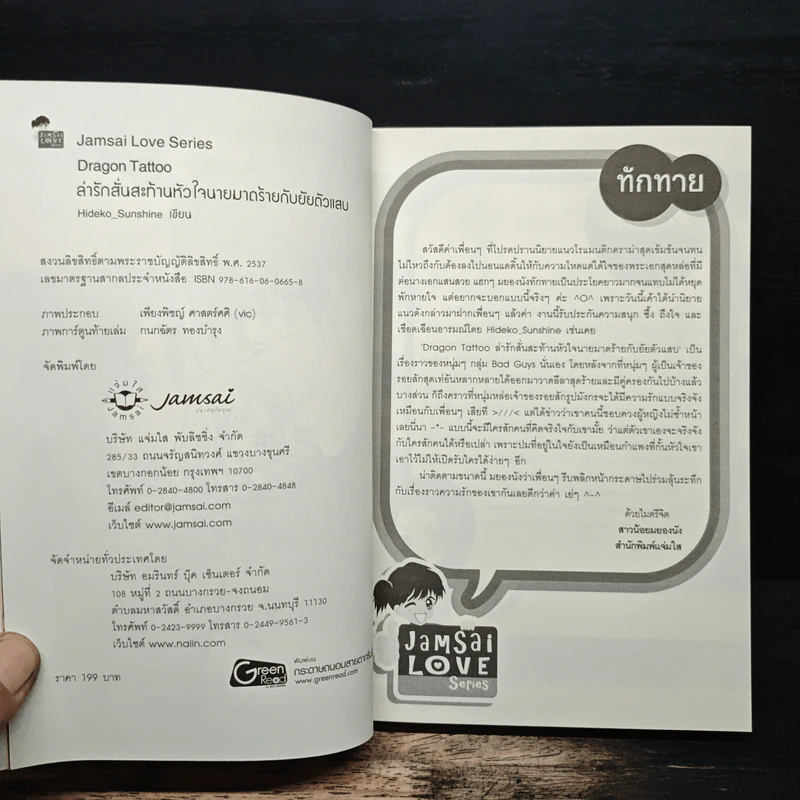 JAMSAI
LOVE
Jamsai Love Series
Dragon Tattoo
ล่ารักสั่นสะท้านหัวใจนายมาดร้ายกับยัยตัวแสบ
Hideko_Sunshine เขียน
สงวนลิขสิทธิ์ตามพระราชบัญญัติลิขสิทธิ์ พ.ศ. 2537
เลขมาตรฐานสากลประจำหนังสือ ISBN 978-616-06-0665-8
ภาพประกอบ เพียงพิชญ์ ศาสตร์ศศิ (vic)
ภาพการ์ตูนท้ายเล่ม กนกฉัตร ทองบำรุง
จัดพิมพ์โดย
แจ่มใส
Jamsai
Jamsai
บริษัท แจ่มใส พับลิชชิ่ง จำกัด
285/33 ถนนจรัญสนิทวงศ์ แขวงบางขุนศรี
เขตบางกอกน้อย กรุงเทพฯ 10700
โทรศัพท์ 0-2840-4800 โทรสาร 0-2840-4848
อีเมล์ editor@jamsai.com
เว็บไซต์ www.jamsai.com
จัดจำหน่ายทั่วประเทศโดย
บริษัท อมรินทร์ บุ๊ค เซ็นเตอร์ จำกัด
108 หมู่ที่ 2 ถนนบางกรวย-จงถนอม
ตำบลมหาสวัสดิ์ อำเภอบางกรวย จ.นนทบุรี 11130
โทรศัพท์ 0-2423-9999 โทรสาร 0-2449-9561-3
เว็บไซต์ www.naiin.com
ราคา 199 บาท
Green
Read
พิมพ์บน
กระดาษถนอมสายตากรีน
www.greenread.com
ทักทาย
สวัสดีค่าเพื่อนๆ ที่โปรดปรานนิยายแนวโรแมนติกดราม่าสุดเข้มข้นจนทน
ไม่ไหวถึงกับต้องลงไปนอนแดดิ้นให้กับความโหดแต่ได้ใจของพระเอกสุดหล่อที่มี
ต่อนางเอกแสนสวย แฮกๆ มยองนังทักทายเป็นประโยคยาวมากจนแทบไม่ได้หยุด
พักหายใจ แต่อยากจะบอกแบบนี้จริงๆ ค่ะ ^O^ เพราะวันนี้เค้าได้นำนิยาย
แนวดังกล่าวมาฝากเพื่อนๆ แล้วค่า งานนี้รับประกันความสนุก ซึ้ง ถึงใจ และ
เชือดเฉือนอารมณ์โดย Hideko_Sunshine เช่นเคย
'Dragon Tattoo ล่ารักสั่นสะท้านหัวใจนายมาดร้ายกับยัยตัวแสบ' เป็น
เรื่องราวของหนุ่มๆ กลุ่ม Bad Guys นั่นเอง โดยหลังจากที่หนุ่มๆ ผู้เป็นเจ้าของ
รอยสักสุดเท่อันหลากหลายได้ออกมาวาดลีลาสุดร้ายและมีคู่ครองกันไปบ้างแล้ว
บางส่วน ก็ถึงคราวที่หนุ่มหล่อเจ้าของรอยสักรูปมังกรจะได้มีความรักแบบจริงจัง
เหมือนกับเพื่อนๆ เสียที >///< แต่ได้ข่าวว่าเขาคนนี้ชอบควงผู้หญิงไม่ซ้ำหน้า
เลยนี่นา -*- แบบนี้จะมีใครสักคนที่คิดจริงใจกับเขามั้ย ว่าแต่ตัวเขาเองจะจริงจัง
กับใครสักคนได้หรือเปล่า เพราะปมที่อยู่ในใจยังเป็นเหมือนกำแพงที่กั้นหัวใจเขา
เอาไว้ไม่ให้เปิดรับใครได้ง่ายๆ อีก
น่าติดตามขนาดนี้ มยองนังว่าเพื่อนๆ รีบพลิกหน้ากระดาษไปร่วมลุ้นระทึก
กับเรื่องราวความรักของเขากันเลยดีกว่าค่า เย่ๆ ^-^
ด้วยไมตรีจิต
สาวน้อยมยองนัง
สำนักพิมพ์แจ่มใส
JAMSAI
LOVE
Series